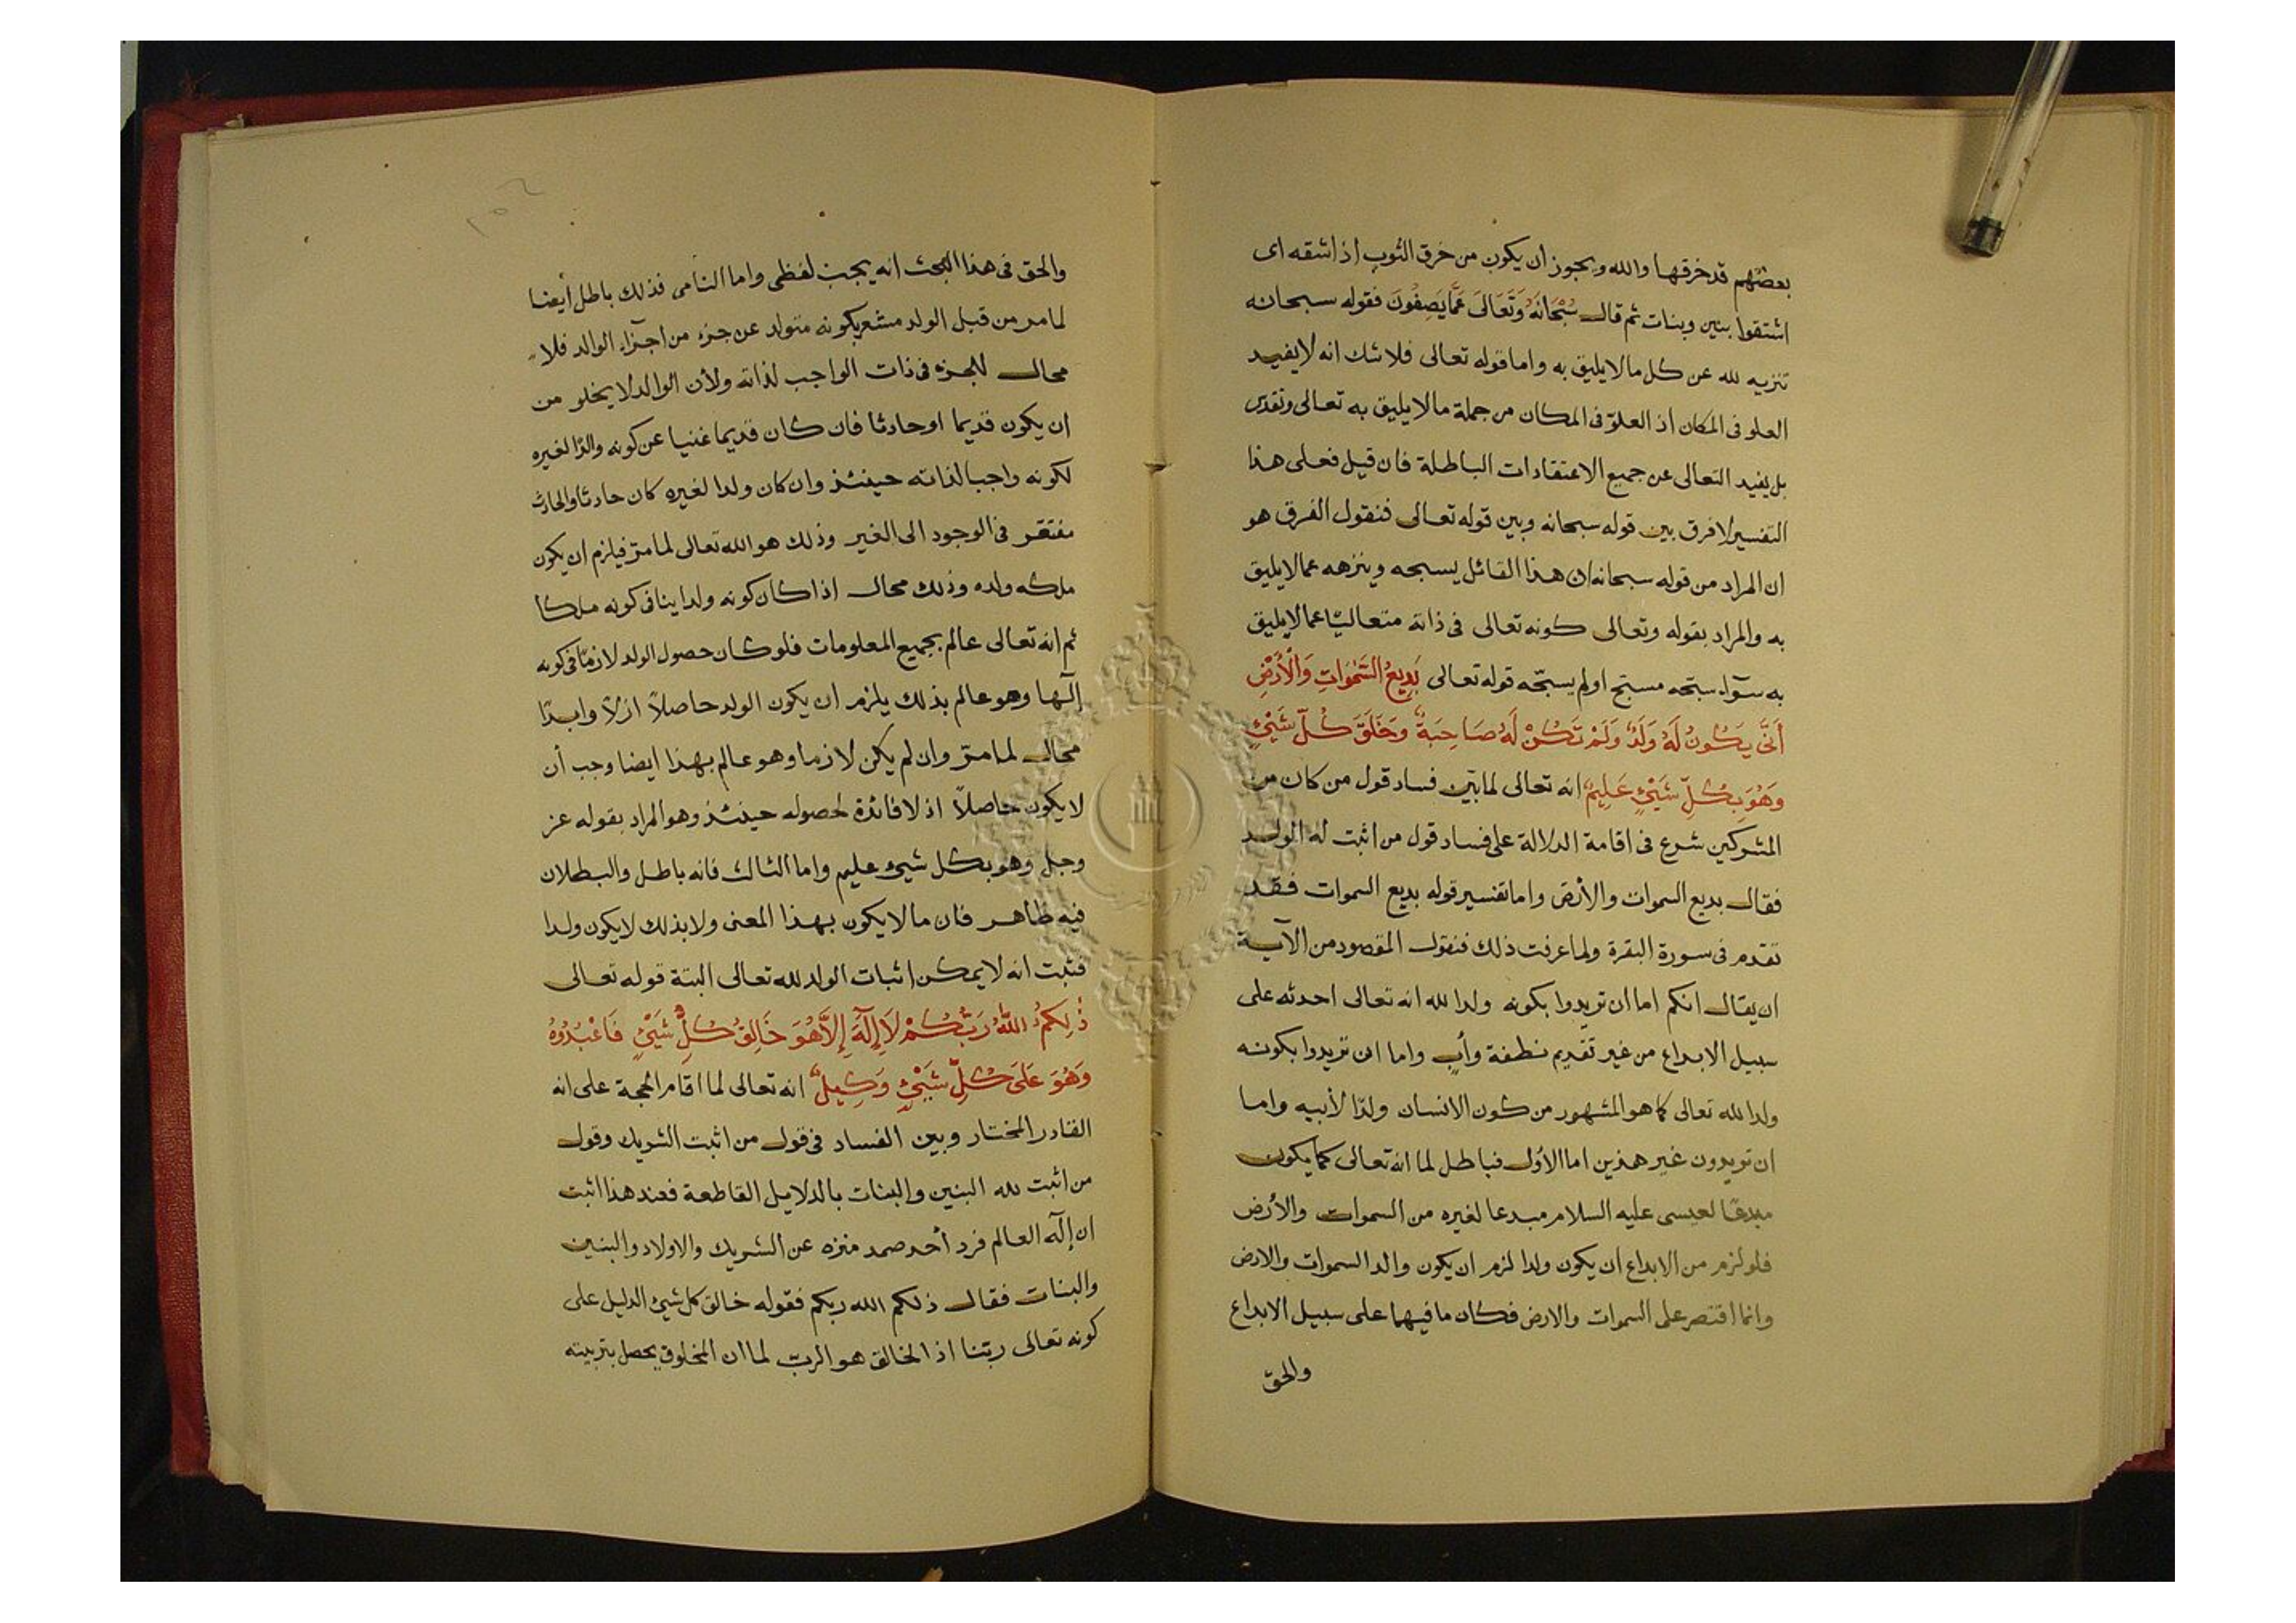 بعضهم قد خرقها والله ويجوز ان يكون من خرق الثوب اذا شقه اى
اشتقوا بنين وبنات ثم قال سُبْحَانَهُ وَتَعَالَى عَمَّا يَصِفُونَ فقوله سبحانه
تنزيه لله عن كل ما لا يليق به واما قوله تعالى فلا شك انه لا يفيد
العلو فى المكان اذ العلوّ فى المكان من جملة ما لا يليق به تعالى وتقدّس
بل يفيد التعالى عن جميع الاعتقادات الباطلة فان قيل فعلى هذا
التفسير لا فرق بين قوله سبحانه وبين قوله تعالى فنقول الفرق هو
ان المراد من قوله سبحانه ان هذا القائل يسبحه وينزهه عما لا يليق
به والمراد بقوله وتعالى كونه تعالى فى ذاته متعاليًا عما لا يليق
به سوآء سبّحه مسبّح او لم يسبّحه قوله تعالى بَدِيعُ السَّمٰوَاتِ وَالْأَرْضِ
اَنّٰى يَكُونُ لَهُ وَلَدٌ وَلَمْ تَكُنْ لَهُ صَاحِبَةٌ وَخَلَقَ كُلَّ شَيْءٍ
وَهُوَ بِكُلِّ شَيْءٍ عَلِيمٌ انه تعالى لما بيّن فساد قول من كان من
المشركين شرع فى اقامة الدلالة على فساد قول من اثبت له الولد
فقال بديع السموات والأرض واما تفسير قوله بديع السموات فقد
تقدم فى سورة البقرة ولما عرفت ذلك فنقول المقصود من الآية
ان يقال انكم اما ان تريدوا بكونه ولدا لله انه تعالى احدثه على
سبيل الابداع من غير تقديم نطفة وأب واما ان تريدوا بكونه
ولدا لله تعالى كما هو المشهور من كون الانسان ولدًا لأبيه واما
ان تريدون غير هذين اما الأول فباطل لما انه تعالى كما يكون
مبدعًا لعيسى عليه السلام مبدعا لغيره من السموات والأرض
فلو لزم من الابداع ان يكون ولدا لزم ان يكون والد السموات والارض
وانما اقتصر على السموات والارض فكان ما فيهما على سبيل الابداع
والحقّ
والحق فى هذا البحث انه يجب لفظى واما النامى فذلك باطل أيضا
لما مر من قبل الولد مشعر بكونه متولد عن جزء من اجزآء الوالد فلا
محال للجزء فى ذات الواجب لذاته ولأن الوالد لا يخلو من
ان يكون قديما او حادثا فان كان قديما غنيا عن كونه والدًا لغيره
لكونه واجبا لذاته حينئذ وان كان ولدا لغيره كان حادثا والحادث
مفتقر فى الوجود الى الغير وذلك هو الله تعالى لما مرّ فيلزم ان يكون
ملكه ولده وذلك محال اذا كان كونه ولدا ينافى كونه ملكا
ثم انه تعالى عالم بجميع المعلومات فلو كان حصول الولد لازمًا فى كونه
إلٓها وهو عالم بذلك يلزم ان يكون الولد حاصلاً ازلاً وابدًا
محال لما مرّ وان لم يكن لازما وهو عالم بهذا ايضا وجب أن
لا يكون حاصلاً اذ لا فائدة لحصوله حينئذ وهو المراد بقوله عز
وجل وهو بكل شيء عليم واما الثالث فانه باطل والبطلان
فيه ظاهر فان ما لا يكون بهذا المعنى ولا بذلك لا يكون ولدا
فثبت انه لا يمكن اثبات الولد لله تعالى البتة قوله تعالى
ذٰلِكُمُ اللّٰهُ رَبُّكُمْ لَا إِلٰهَ إِلَّا هُوَ خَالِقُ كُلِّ شَيْءٍ فَاعْبُدُوهُ
وَهُوَ عَلَى كُلِّ شَيْءٍ وَكِيلٌ انه تعالى لما اقام الحجة على انه
القادر المختار وبين الفساد فى قول من اثبت الشريك وقول
من اثبت لله البنين والبنات بالدلايل القاطعة فعند هذا اثبت
ان إلٓه العالم فرد أحد صمد منزه عن الشريك والاولاد والبنين
والبنات فقال ذلكم الله ربكم فقوله خالق كل شيء الدليل على
كونه تعالى ربّنا اذ الخالق هو الربّ لما ان المخلوق يحصل بتربيته